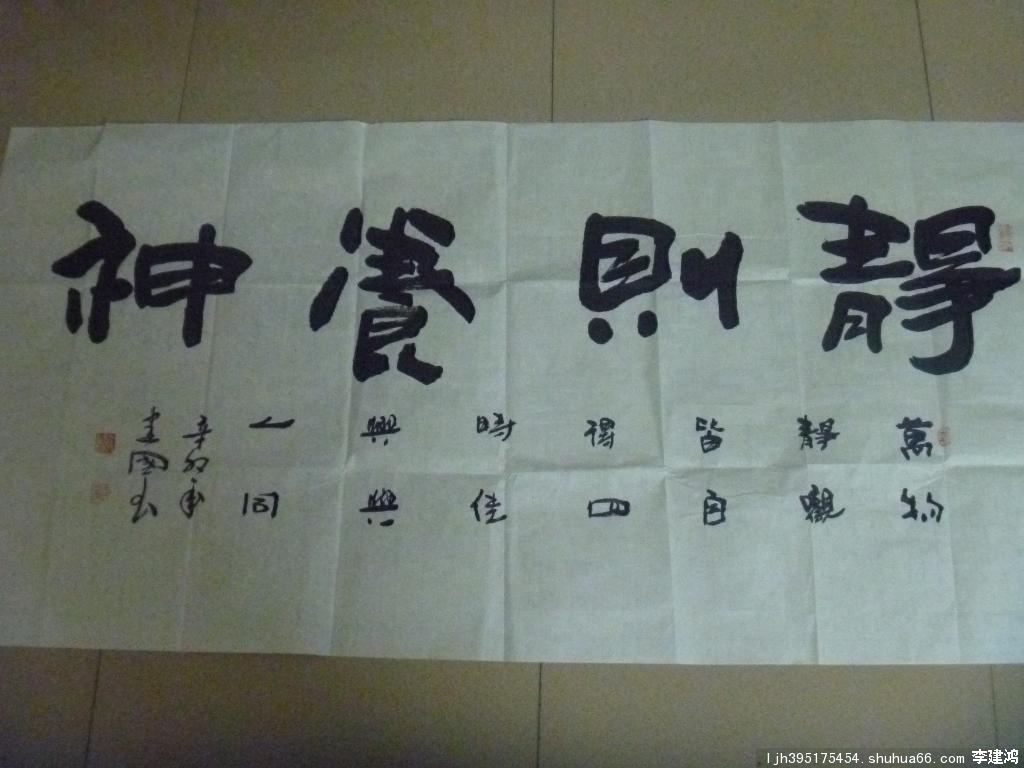 靜則養神
萬物
靜觀
皆自
得四
時佳
興與
人同
辛卯年
建國书
ljh395175454.shuhua66.com 李建鸿